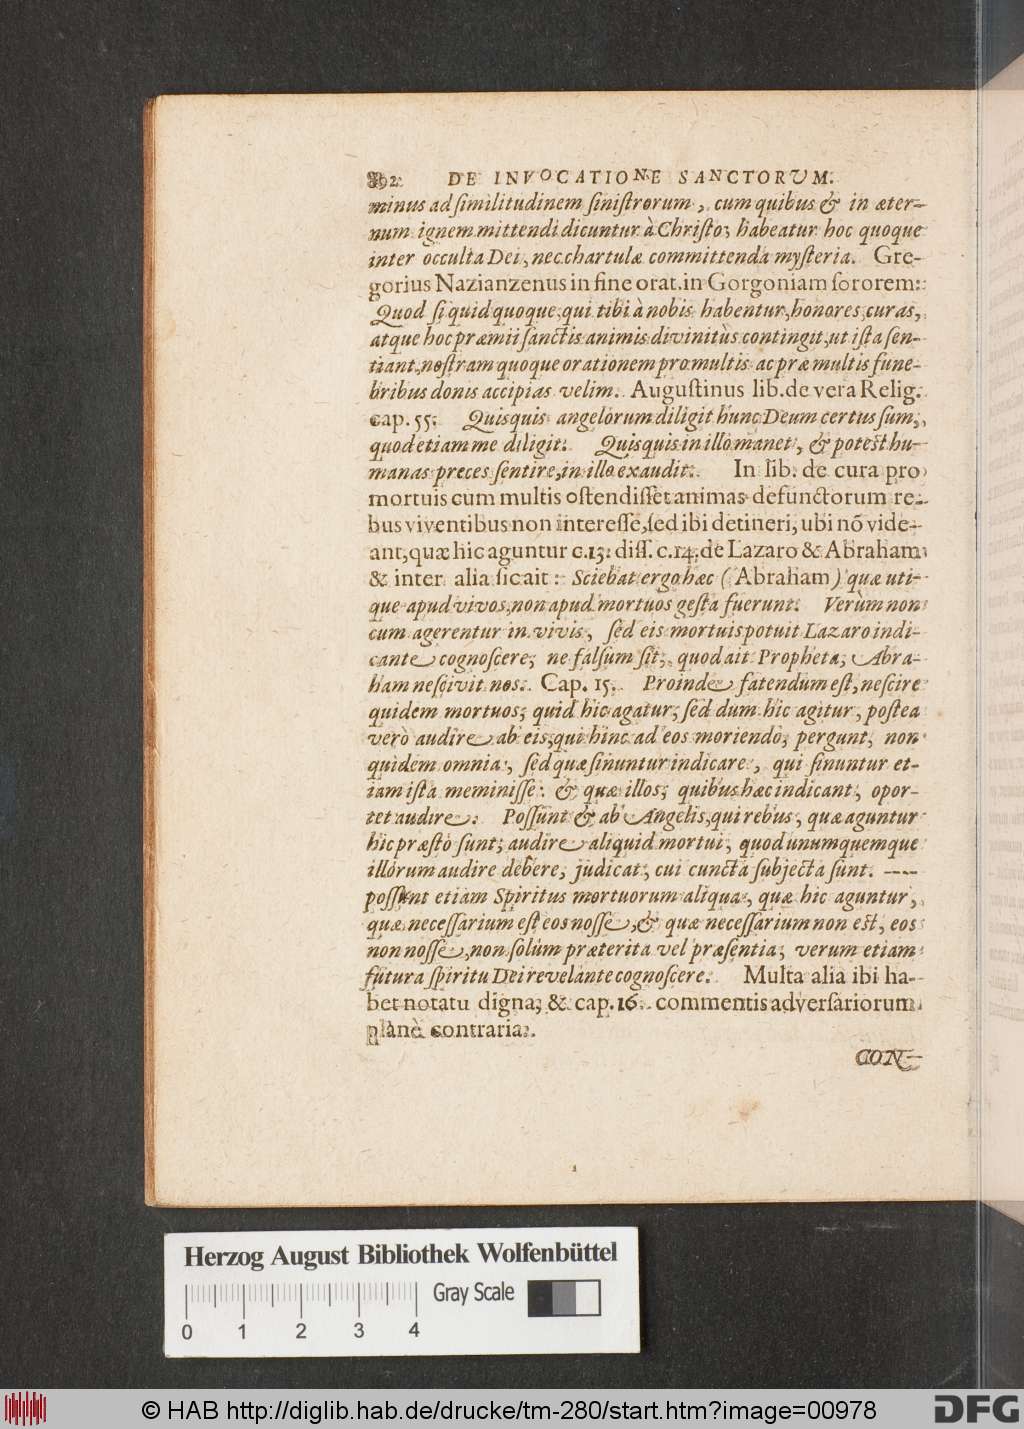 392. DE INVOCATIONE SANCTORUM.
minus ad ſimilitudinem ſiniſtrorum, cum quibus & in æter-
num ignem mittendi dicuntur à Chriſto; habeatur hoc quoque
inter occulta Dei, nec chartulæ committenda myſteria. Gre-
gorius Nazianzenus in fine orat. in Gorgoniam ſororem:
Quod ſi quid quoque, qui tibi à nobis habentur, honores curas,
atque hoc præmii ſanctis animis divinitùs contingit, ut iſta ſen-
tiant, noſtram quoque orationem pro multis ac præ multis fune-
bribus donis accipias velim. Auguſtinus lib. de vera Relig.
cap. 55. Quisquis angelorum diligit hunc Deum certus ſum,
quod etiam me diligit. Quisquis in illo manet, & poteſt hu-
manas preces ſentire, in illo exaudit. In lib. de cura pro
mortuis cum multis oſtendiſſet animas defunctorum re-
bus viventibus non intereſſe, ſed ibi detineri, ubi nō vide-
ant, quæ hic aguntur c. 13. diſſ. c. 14. de Lazaro & Abraham
& inter alia ſic ait: Sciebat ergo hæc (Abraham) quæ uti-
que apud vivos, non apud mortuos geſta fuerunt. Verùm non
cum agerentur in vivis, ſed eis mortuis potuit Lazaro indi-
cante cognoſcere; ne falſum ſit, quod ait Propheta; Abra-
ham neſcivit nos. Cap. 15. Proinde fatendum eſt, neſcire
quidem mortuos; quid hic agatur; ſed dum hic agitur, poſtea
verò audire ab eis, qui hinc ad eos moriendò; pergunt, non
quidem omnia, ſed quæ ſinuntur indicare, qui ſinuntur et-
iam iſta meminiſſe: & quæ illos; quibus hæc indicant, opor-
tet audire. Poſſunt & ab Angelis, qui rebus, quæ aguntur
hic præſtò ſunt; audire aliquid mortui; quod unumquemque
illórum audire debere, judicat, cui cuncta ſubjecta ſunt. ----
poſſunt etiam Spiritus mortuorum aliqua, quæ hic aguntur,
quæ neceſſarium eſt eos noſſe, & quæ neceſſarium non eſt, eos
non noſſe, non ſolùm præterita vel præſentia; verum etiam
futura ſpiritu Dei revelante cognoſcere. Multa alia ibi ha-
bet notatu digna; & cap. 16. commentis adverſariorum
planè contraria.
CON-
Herzog August Bibliothek Wolfenbüttel
Gray Scale
0 1 2 3 4
© HAB http://diglib.hab.de/drucke/tm-280/start.htm?image=00978
DFG